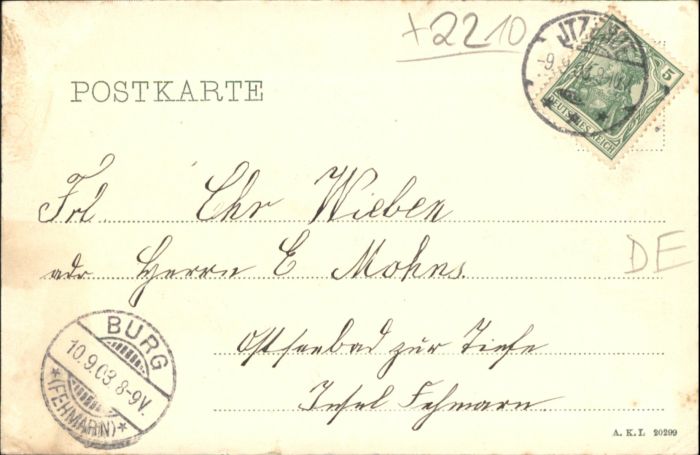 +2210
ITZEHOE
-9.9.03.
5
DEUTSCHES REICH
POSTKARTE
Frl Chr Wieben
adr Herrn E Mohns.
DE
Ostseebad zur Tiefe
Insel Fehmarn
BURG
10.9.03 8-9V.
*(FEHMARN)*
A. K. I. 20299